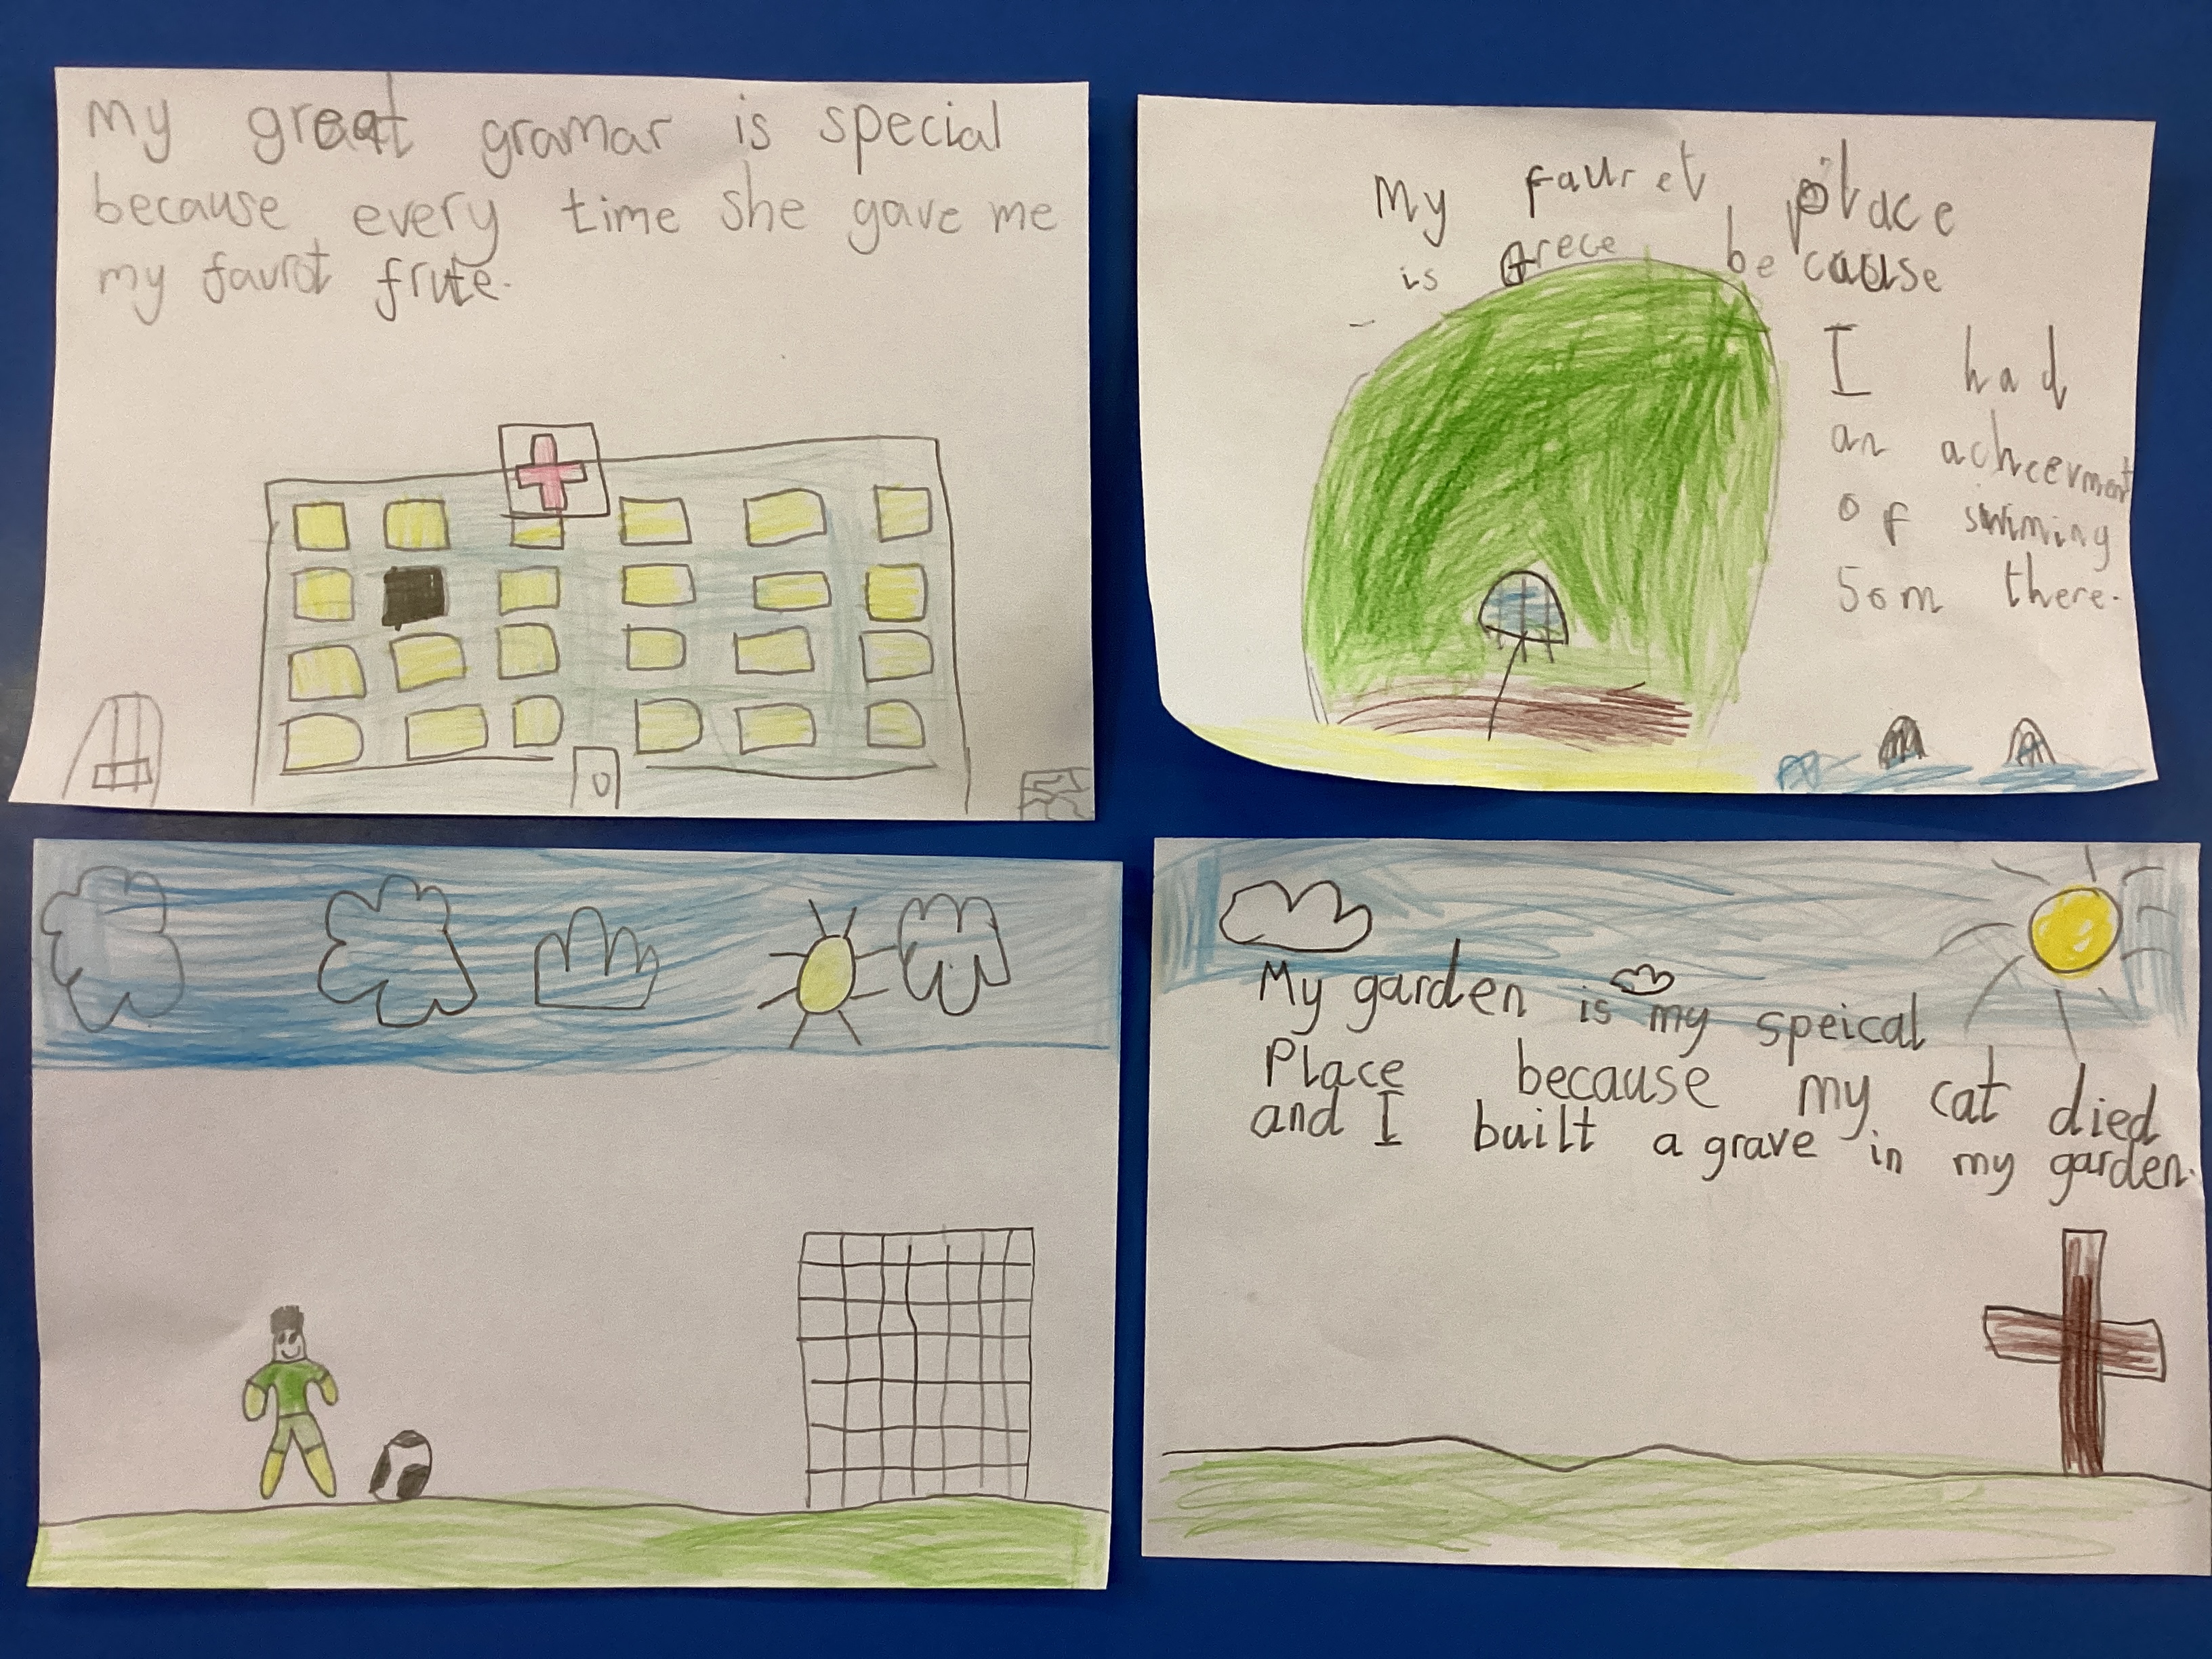 my great gramar is special
because every time she gave me
my favrot frute.
My favret place
is Grece because
I had
an achcevment
of swiming
50m there.
My garden is my speical
Place because my cat died
and I built a grave in my garden.